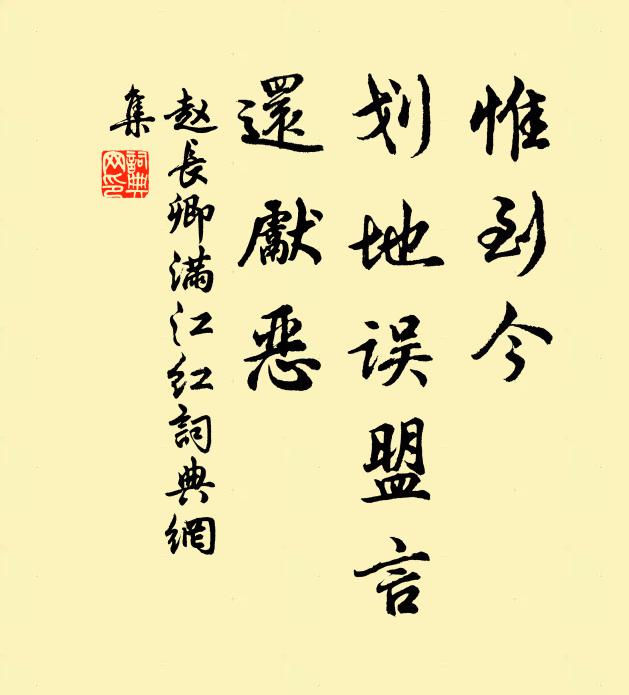 惟到今
划地误盟言
還獻恶
赵長卿满江红詞典網
集
詞典
网印